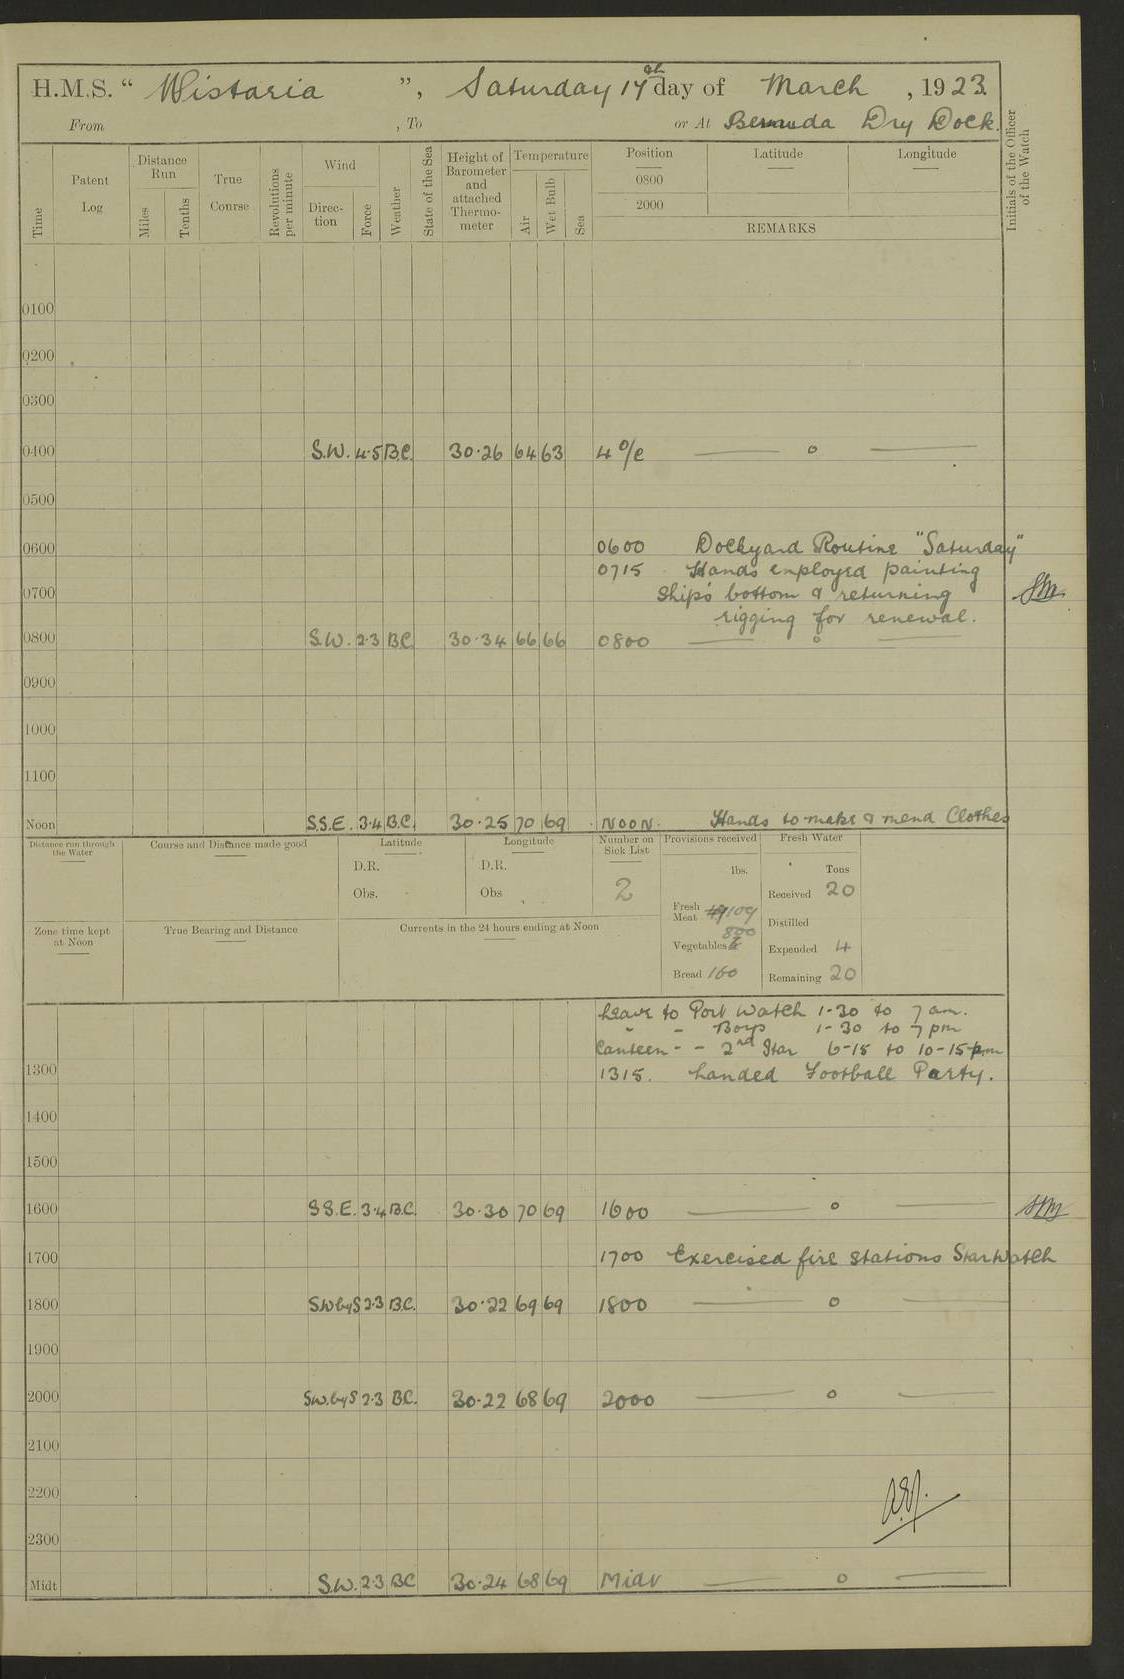 H.M.S. “ Wistaria ”, Saturday 17th day of March , 1923
From , To or At Bermuda Dry Dock.
Time
Patent Log
Distance Run
Miles
Tenths
True Course
Revolutions per minute
Wind
Direction
Force
Weather
State of the Sea
Height of Barometer and attached Thermometer
Temperature
Air
Wet Bulb
Sea
Position
0800
2000
Latitude
Longitude
REMARKS
Initials of the Officer of the Watch
0100
0200
0300
0400 S.W. 4·5 B.C. 30·26 64 63 4 o/c — o —
0500
0600 0600 Dockyard Routine "Saturday"
0715 Hands employed painting
0700 Ship's bottom & returning
rigging for renewal.
0800 S.W. 2·3 B.C. 30·34 66 66 0800 — o —
0900
1000
1100
Noon S.S.E. 3·4 B.C. 30·25 70 69 Noon. Hands to make & mend Clothes
Distance run through the Water
Course and Distance made good
Latitude
D.R.
Obs.
Longitude
D.R.
Obs
Number on Sick List
2
Provisions received
lbs.
Fresh Meat 109
800
Vegetables
Bread 160
Fresh Water
Tons
Received 20
Distilled
Expended 4
Remaining 20
Zone time kept at Noon
True Bearing and Distance
Currents in the 24 hours ending at Noon
Leave to Port Watch 1-30 to 7 am.
" - Boys 1-30 to 7 pm
Canteen - - 2nd Star 6-15 to 10-15 pm
1300 1315. Landed Football Party.
1400
1500
1600 S.S.E. 3·4 B.C. 30·30 70 69 1600 — o —
1700 1700 Exercised fire stations Star Watch
1800 SWbyS 2·3 B.C. 30·22 69 69 1800 — o —
1900
2000 SW.byS 2·3 B.C. 30·22 68 69 2000 — o —
2100
2200
2300
Midt S.W. 2·3 BC 30·24 68 69 Midt — o —